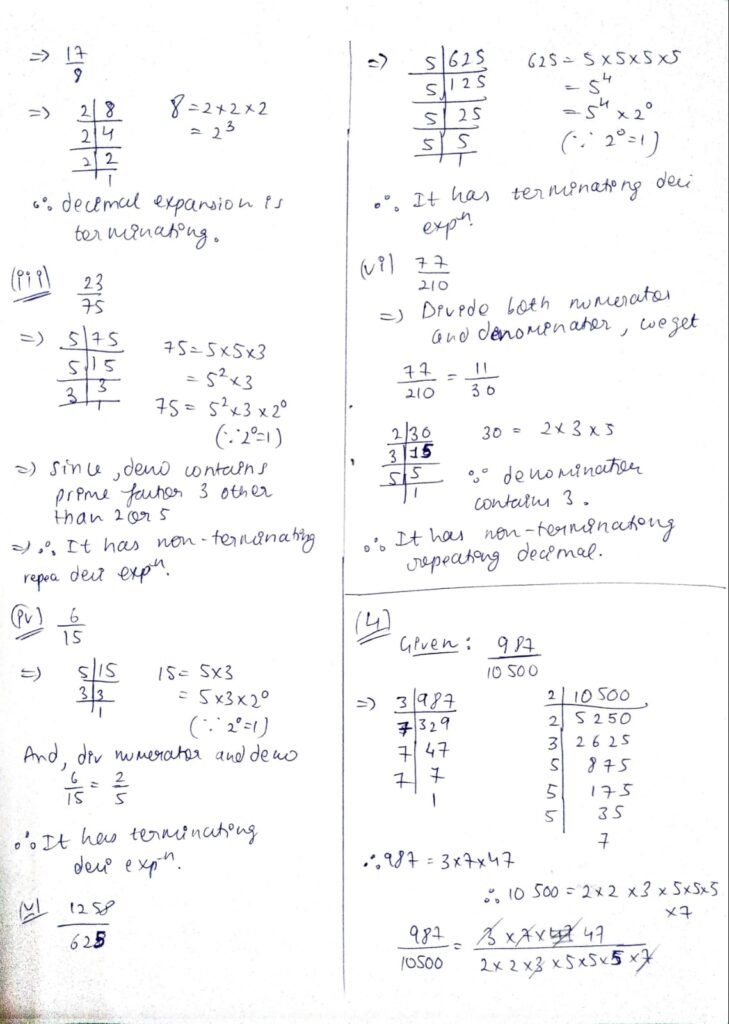 =) 17
8
=) 2 | 8 8 = 2 × 2 × 2
2 | 4 = 2³
2 | 2
1
∴ decimal expansion is
terminating.
(iii) 23
75
=) 5 | 75 75 = 5×5×3
5 | 15 = 5²×3
3 | 3 75 = 5²×3×2⁰
1 (∵ 2⁰=1)
=) Since, deno contains
prime factor 3 other
than 2 or 5
=) ∴ It has non-terminating
repea deci expⁿ.
(iv) 6
15
=) 5 | 15 15 = 5×3
3 | 3 = 5×3×2⁰
1 (∵ 2⁰=1)
And, div numerator and deno
6/15 = 2/5
∴ It has terminating
deci expⁿ.
(v) 1258
625
=) 5 | 625 625 = 5×5×5×5
5 | 125 = 5⁴
5 | 25 = 5⁴ × 2⁰
5 | 5 (∵ 2⁰=1)
1
∴ It has terminating deci
expⁿ.
(vi) 77
210
=) Divide both numerator
and denominator, we get
77/210 = 11/30
2 | 30 30 = 2×3×5
3 | 15
5 | 5 ∵ denominator
1 contains 3.
∴ It has non-terminating
repeating decimal.
(4)
Given: 987
10500
=) 3 | 987 2 | 10 500
7 | 329 2 | 5 250
7 | 47 3 | 2 6 2 5
7 | 7 5 | 8 7 5
1 5 | 1 7 5
5 | 3 5
7
∴ 987 = 3×7×47
∴ 10 500 = 2×2 ×3 × 5×5×5
×7
987/10500 = 3 × 7 × 47 47 / 2×2×3×5×5×5×7